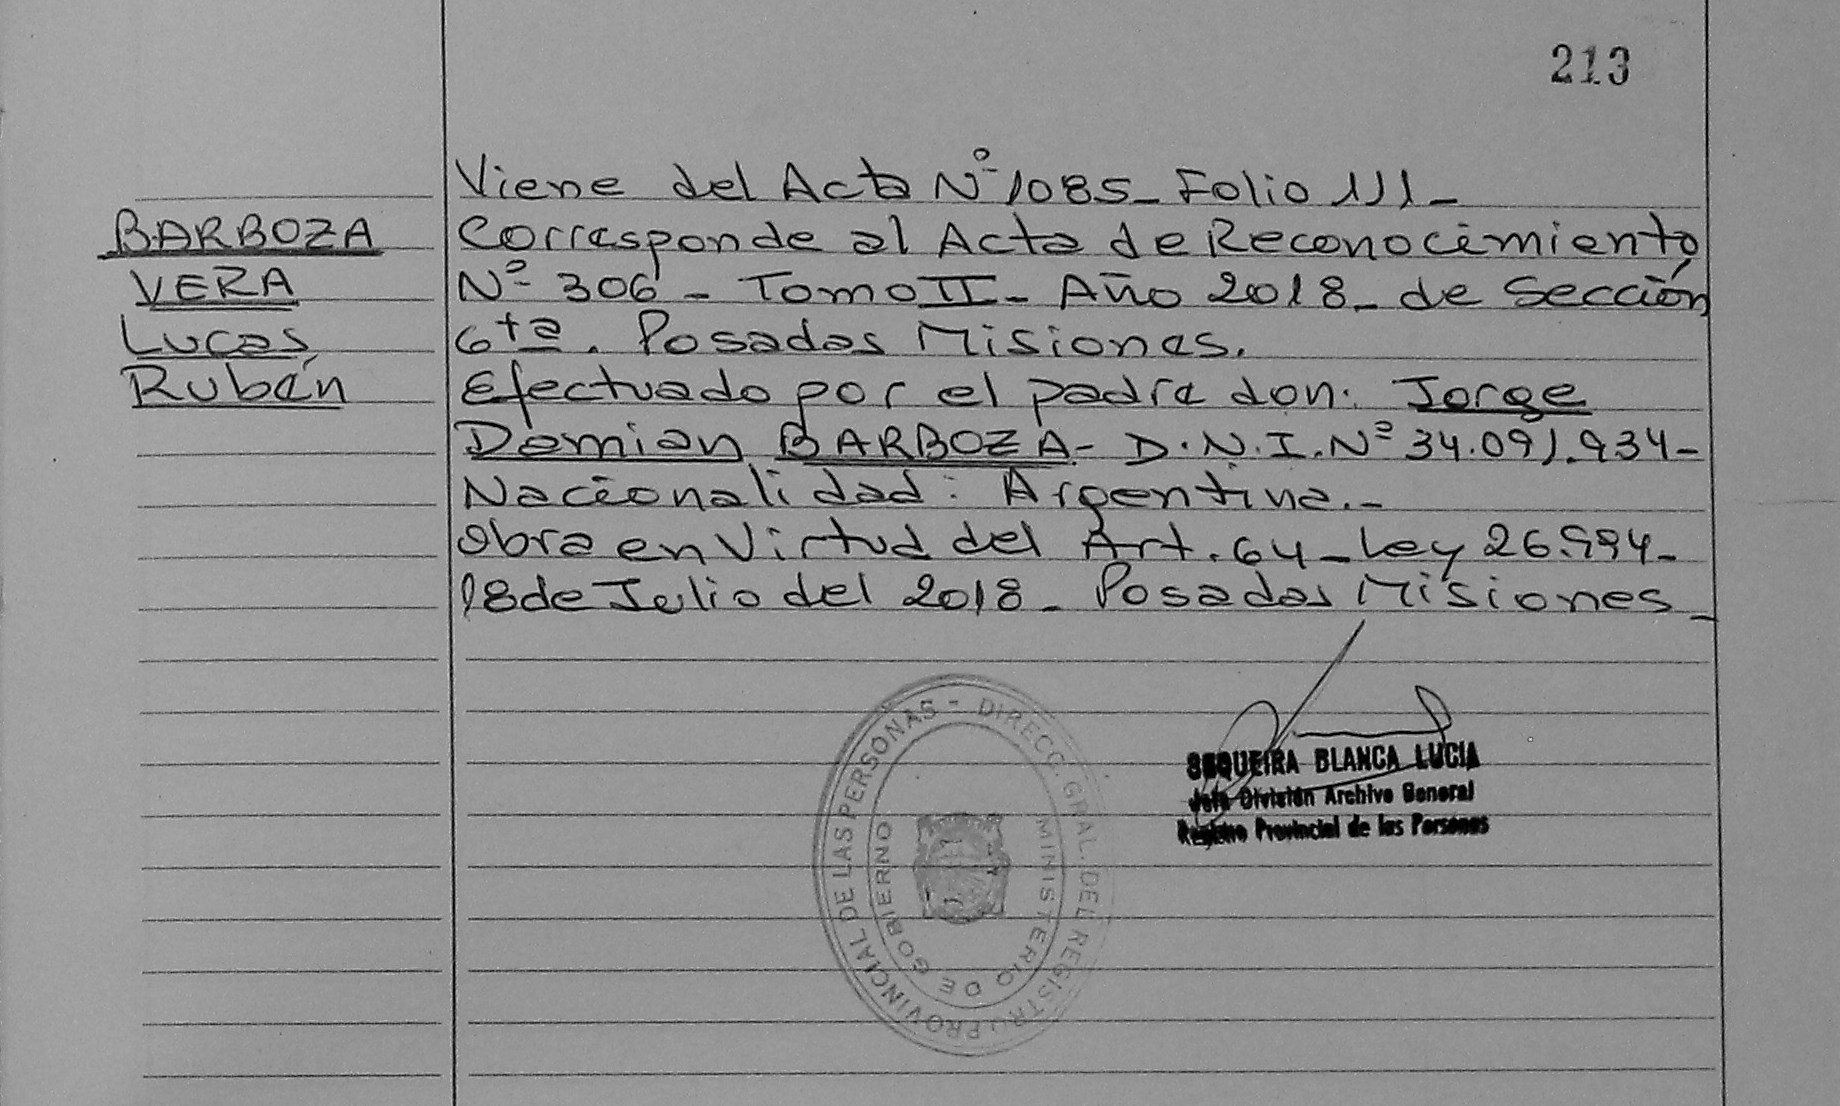 213
Viene del Acta Nº 1085- Folio 111-
BARBOZA
VERA
Lucas
Rubén
Corresponde al Acta de Reconocimiento
Nº 306 - Tomo II - Año 2018 - de Sección
6ta. Posadas Misiones.
Efectuado por el padre don: Jorge
Damian BARBOZA - D.N.I. Nº 34.091.934-
Nacionalidad: Argentina.-
Obra en Virtud del Art. 64 - Ley 26.994-
18 de Julio del 2018 - Posadas Misiones-
SEQUEIRA BLANCA LUCIA
Jefa División Archivo General
Registro Provincial de las Personas
DIRECC. GRAL. DEL REGISTR. PROVINCIAL DE LAS PERSONAS -
MINISTERIO DE GOBIERNO